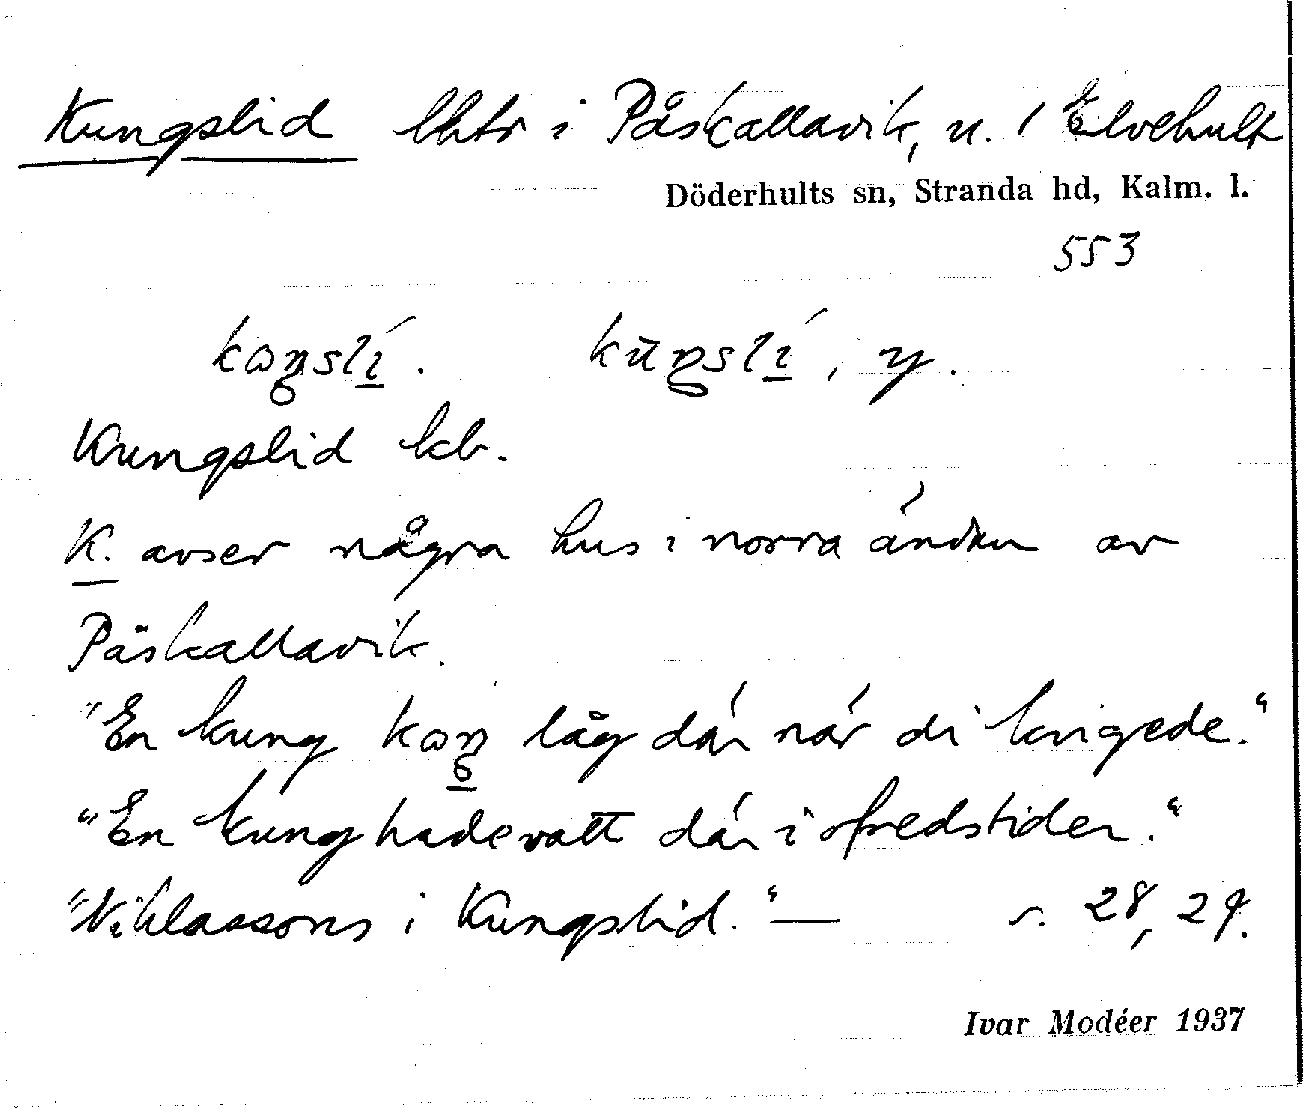 Kungslid lhtr i Påskallavik, u. 1 Elvehult
Döderhults sn, Stranda hd, Kalm. l.
553
kɷŋslí. kūŋslí, y.
Kungslid kb.
K. avser några hus i norra ändan av
Påskallavik.
"En kung kɷŋ låg där när di krigede."
"En kung hade vatt där i ofredstider."
"Niklassons i Kungslid." — s. 28, 29.
Ivar Modéer 1937